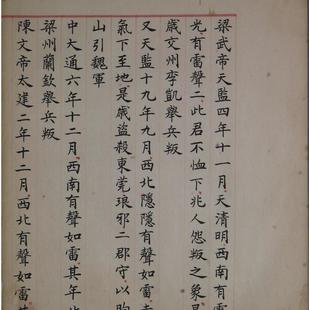 梁武帝天監四年十一月天清明西南有電
光有雷聲二此君不恤下兆人怨叛之象是
歲交州李凱舉兵叛
又天監十九年九月西北隱隱有聲如雷赤
氣下至地是歲盜殺東莞琅邪二郡守以朐
山引魏軍
中大通六年十二月西南有聲如雷其年北
梁州蘭欽舉兵叛
陳文帝太建二年十二月西北有聲如雷其